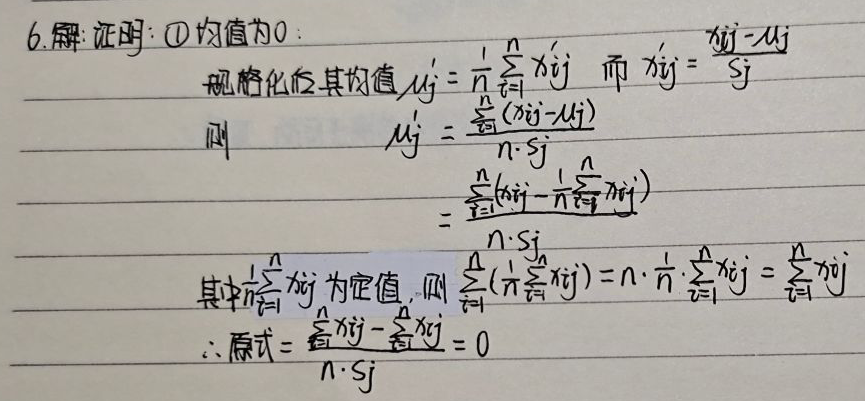 6.解:证明:①均值为0:
规格化后其均值 μj' = 1/n ∑_{i=1}^{n} xij' 而 xij' = (xij-μj)/Sj
则 μj' = ∑_{i=1}^{n}(xij-μj) / (n·Sj)
= ∑_{i=1}^{n}(xij - 1/n ∑_{i=1}^{n} xij) / (n·Sj)
其中 1/n ∑_{i=1}^{n} xij 为定值,则 ∑_{i=1}^{n}(1/n ∑_{i=1}^{n} xij) = n·1/n·∑_{i=1}^{n} xij = ∑_{i=1}^{n} xij
∴原式 = (∑_{i=1}^{n} xij - ∑_{i=1}^{n} xij) / (n·Sj) = 0